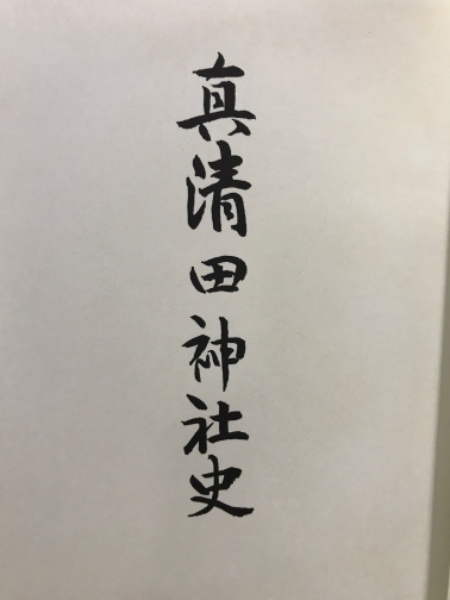 真清田神社史